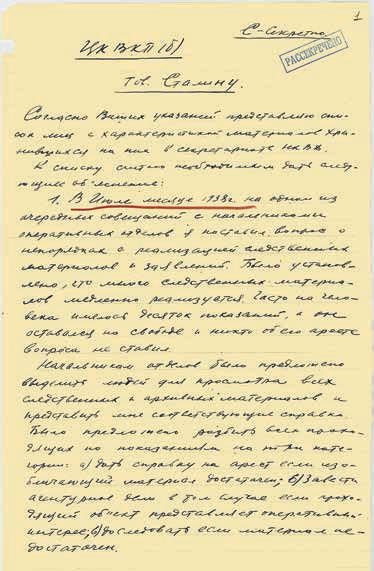 1
С-секретно
РАССЕКРЕЧЕНО
ЦК ВКП(б)
тов. Сталину.
Согласно Ваших указаний представляю спи-
сок лиц с характеристикой материалов хра-
нившихся на них в секретариате НКВД.
К списку считаю необходимым дать следу-
ющие об'яснение:
1. В Июле месяце 1938 г. на одном из
очередных совещаний с начальниками
оперативных отделов я поставил вопрос о
непорядках с реализацией следственных
материалов и заявлений. Было установ-
лено, что много следственных материа-
лов медленно реализуется. Часто на чело-
века имелось десяток показаний, а он
оставался на свободе и никто об его аресте
вопроса не ставил.
Начальникам отделов было предложено
выделить людей для просмотра всех
следственных и архивных материалов и
представить мне соответствующие справки.
Было предложено разбить всех прохо-
дящих по показаниям на три кате-
гории: а) дать справку на арест если изо-
бличающий материал достаточен; б) Завести
агентурное дело в том случае если прохо-
дящий об'ект представляет оперативный
интерес; в) доследовать если материал не-
достаточен.